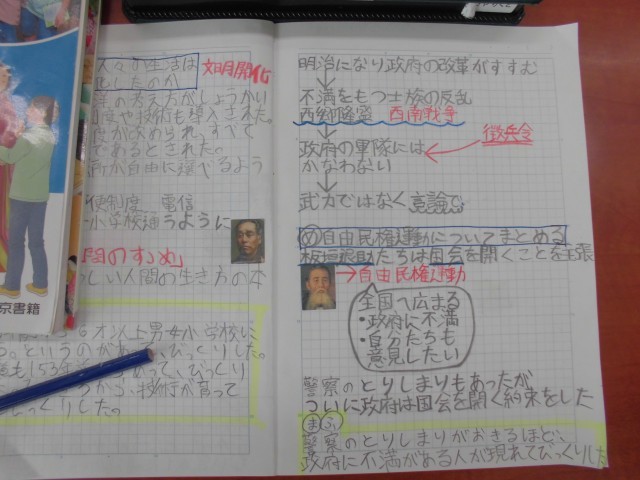 人々の生活は
化したのか
文明開化
年の考え方がしょうかい
制度や技術も導入された。
すべて
であるとされた。
自由に選べるよう
便制度 電信
小学校通うように
しい人間の生き方の本
才以上男女小学校に
。というのが びっくりした。
153年 びっくり
から、技術が育って
びっくりした。
京書籍
明治になり政府の改革がすすむ
不満をもつ士族の反乱
西郷隆盛 西南戦争
徴兵令
政府の軍隊には
かなわない
武力ではなく言論で
め 自由民権運動についてまとめる
板垣退助たちは国会を開くことを主張
→自由民権運動
全国へ広まる
・政府に不満
・自分たちも
意見したい
警察のとりしまりもあったが
ついに政府は国会を開く約束をした
まふ
警察のとりしまりがおきるほど、
政府に不満がある人が現れてびっくりした